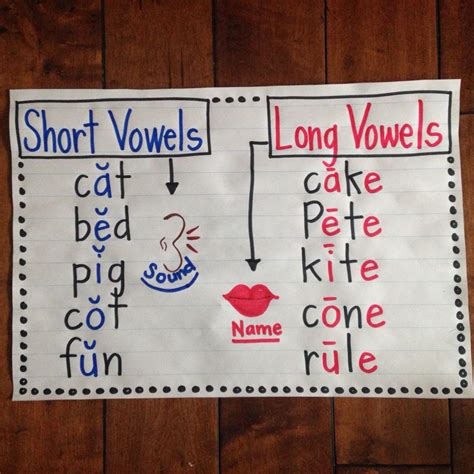 Short Vowels
căt
bĕd
pĭg
cŏt
fŭn
Sound
Long Vowels
cāke
Pēte
kīte
cōne
rūle
Name